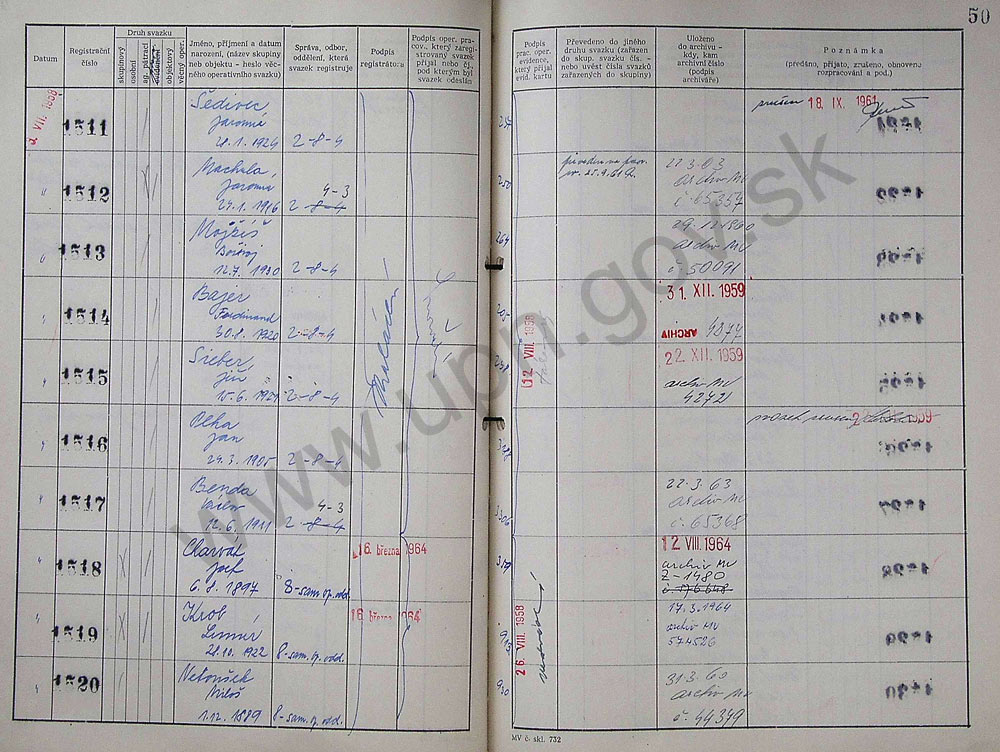 50
Datum
Registrační číslo
Druh svazku
skupinový
osobní
ag. pátrací
objektový
věcný oper.
Jméno, příjmení a datum
narození, (název skupiny
neb objektu - heslo věc-
ného operativního svazku)
Správa, odbor,
oddělení, která
svazek registruje
Podpis
registrátora
Podpis oper. pra-
cov., který zareg-
istrovaný svazek
přijal nebo čj.,
pod kterým byl
svazek odeslán
Podpis
prac. oper.
evidence,
který přijal
evid. kartu
Převedeno do jiného
druhu svazku (zařazen
do skup. svazku čís. –
nebo uvést čísla svazků
zařazených do skupiny)
Uloženo
do archivu -
kdy, kam
archivní číslo
(podpis
archiváře)
Poznámka
(předáno, přijato, zrušeno, obnoveno
rozpracování a pod.)
VII. 1958
1511
Šedivec
Jaromír
28.1. 1924 2-8-4
zrušen 18. IX. 1961
1512
Machala,
Jaromír 4-3
24.1. 1916 2-8-4
250
22.3.63
archiv MV
č. 65357
1513
Mojžíš
Bořivoj
12.7. 1930 2-8-4
264
29.12.1960
archiv MV
č. 50091
1514
Bajer
Ferdinand
30.8. 1920 2-8-4
31. XII. 1959
ARCHIV 4877
1515
Sieber,
Jiří
15.6. 1921 2-8-4
12. VIII. 1958
22. XII. 1959
archiv MV
4272
1516
Olha
Jan
24.3. 1905 2-8-4
1517
Benda
4-3
12.6. 1911 2-8-4
22.3.63
archiv MV
č. 65368
1518
X
Charvat
Josef
6.8. 1897 8-sam. op. odd.
16. března 1964
319
12. VIII. 1964
archiv MV
Z-1480
1519
X
Krob
28.10. 1922 8-sam. op. odd.
16. března 1964
26. VIII. 1958
17.3.1964
archiv MV
574526
1520
Netoušek
Miloš
1.12. 1889 8-sam. op. odd.
930
31.3.60
archiv MV
č. 44349
MV č. skl. 732
www.upn.gov.sk